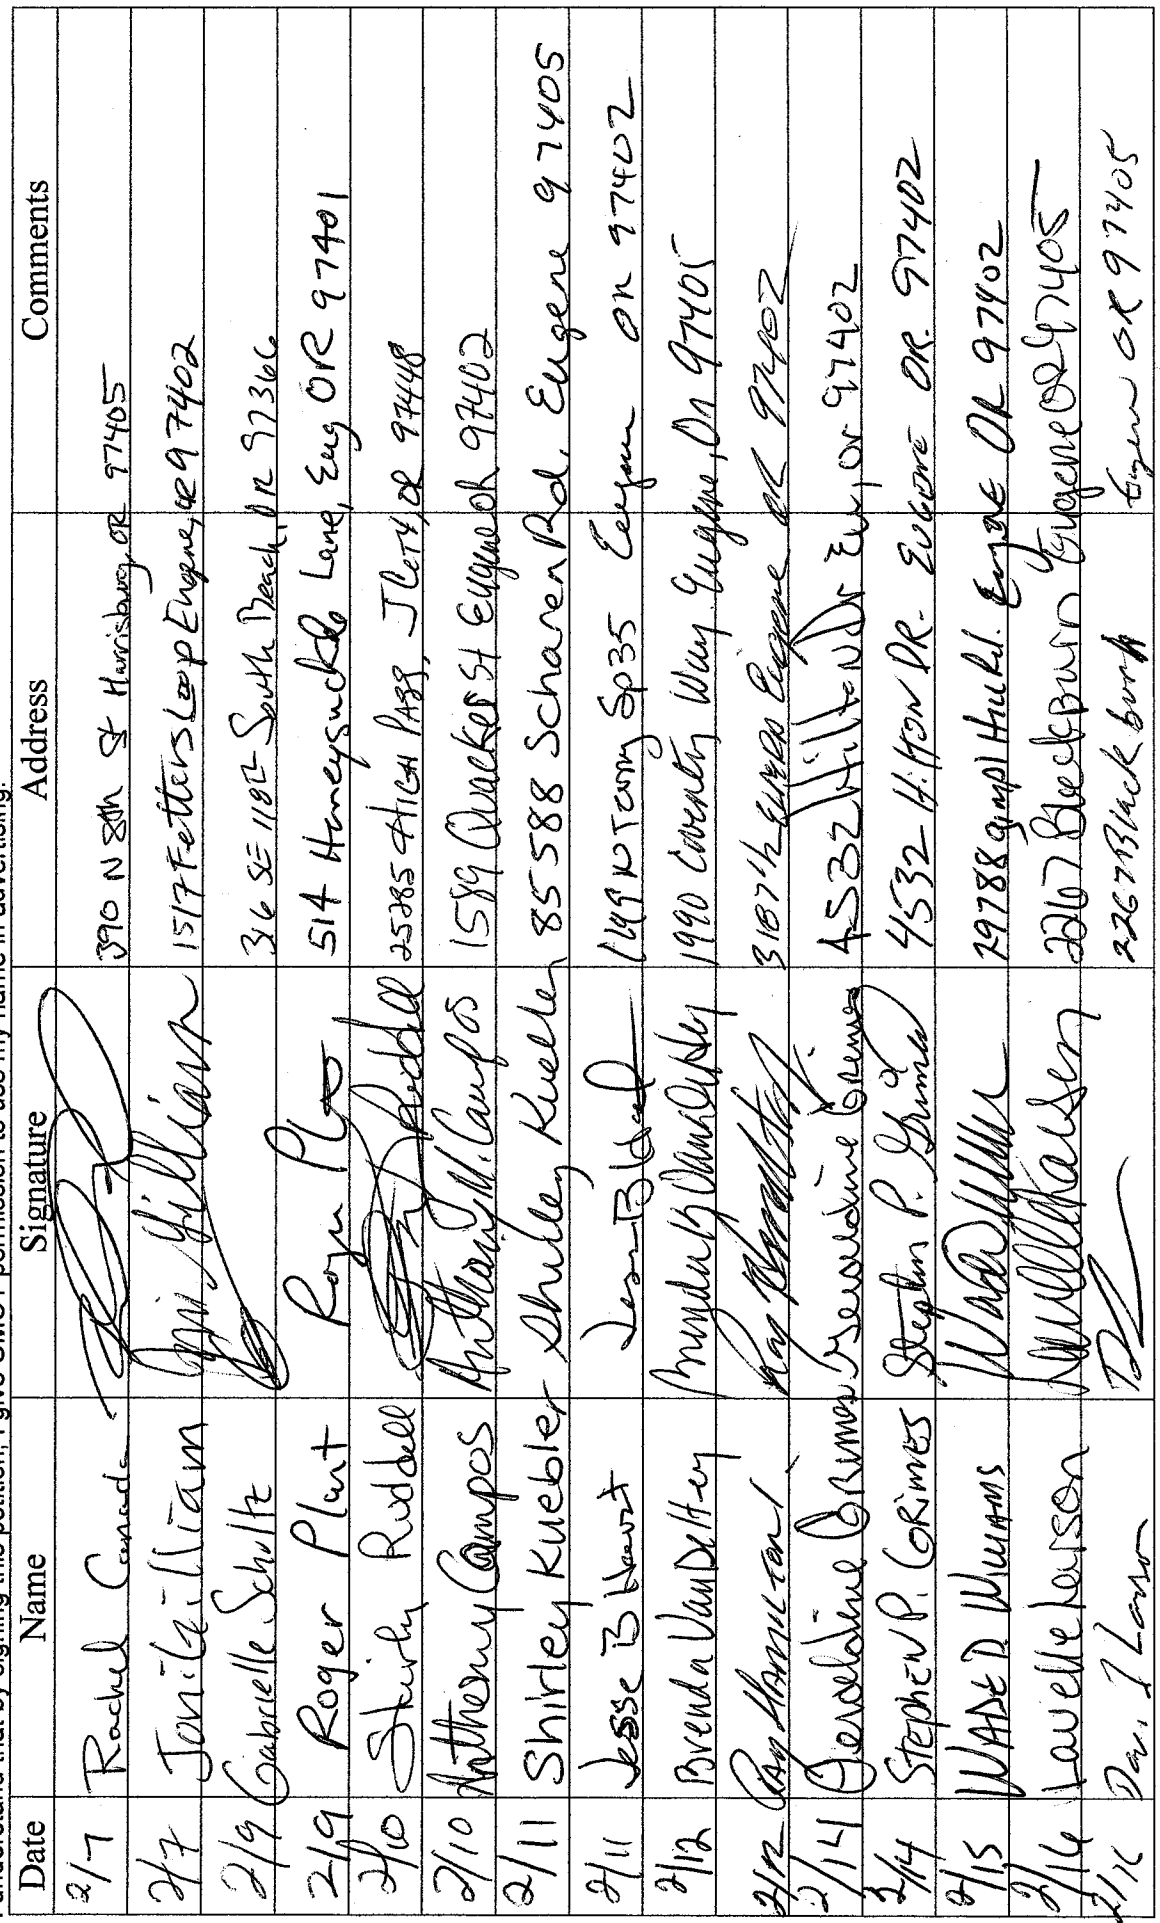 Date Name Signature Address Comments
2/7 Rachel 390 N 8th St Harrisburg, OR 97405
2/7 Joni Gilliam Joni Gilliam 1517 Fetters Loop Eugene, OR 97402
2/9 Gabrielle Schultz 316 SE 118th South Beach OR 97366
2/9 Roger Plant 514 Honeysuckle Lane, Eug OR 97401
2/10 Riddell Riddell 25285 High Pass, J City, OR 97448
2/10 Anthony Campos Anthony M. Campos 1589 Quacker St Eugene OR 97402
2/11 Shirley Kuebler Shirley Kuebler 85588 Scharen Rd. Eugene 97405
2/11 Jesse B 1199 N Terry Sp35 Eugene OR 97402
2/12 Brenda 1990 Coventry Way Eugene, OR 97405
2/12 Ray Hamilton Ray Hamilton Eugene OR 97402
2/14 Geraldine Grimes Geraldine Grimes 4532 Hilton Dr Eug, OR 97402
2/14 Stephen P. Grimes Stephen P. Grimes 4532 Hilton DR. Eugene OR. 97402
2/15 Wade D Williams 29788 Gimpl Hill Rd. Eugene OR 97402
2/16 Lavelle Larson 2267 Blackburn Eugene OR 97405
2/16 Larson 2267 Blackburn Eugene OR 97405